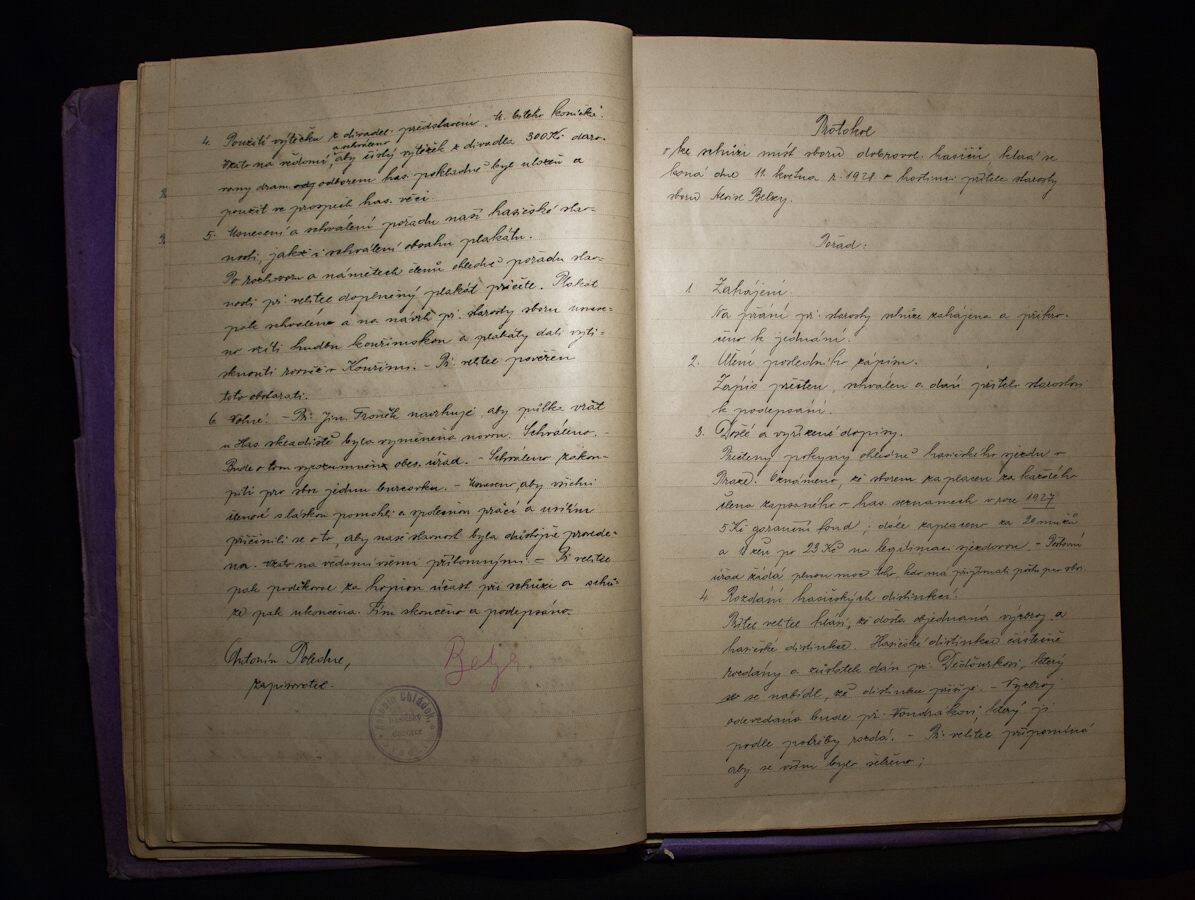 4. Použití výtěžku z divadel. představení "U bílého koníčka".
Vzato na vědomí a schváleno, aby čistý výtěžek z divadla 300 Kč daro-
vaný dram. odborem has. pokladně byl uložen a
použit ve prospěch has. věci.
5. Usnesení a schválení pořadu naší hasičské slav-
nosti, jakož i schválení obsahu plakátu.
Po rozhovoru a námětech členů ohledně pořadu slav-
nosti př. velitel doplněný plakát přečte. Plakát
pak schválen a na návrh př. starosty sboru usnese-
no vzíti hudbu kouřimskou a plakáty dáti vyti-
sknouti rovněž v Kouřimi. - Př. velitel pověřen
toto obstarati.
6. Volné. - Př. Jin. Troněk navrhuje, aby půlka vrat
u has. skladiště byla vyměněna novou. Schváleno. -
Bude o tom vyrozuměn obec. úřad. - Schváleno zakou-
piti pro sbor jednu burcovku. - Usneseno, aby všichni
členové s láskou pomohli a společnou prací a úsilím
přičinili se o to, aby naše slavnost byla důstojně provede-
na. Vzato na vědomí všemi přítomnými. - Př. velitel
pak poděkoval za hojnou účast při schůzi a schů-
ze pak ukončena. Tím skončeno a podepsáno.
Antonín Poledne,
zapisovatel.
Protokol
o ke schůzi míst. sboru dobrovol. hasičů, která se
koná dne 11. května r. 1928 v hostinci přítele starosty
sboru
Pořad:
1. Zahájení.
Na přání př. starosty schůze zahájena a přikro-
čeno k jednání.
2. Čtení posledního zápisu.
Zápis přečten, schválen a dán příteli starostovi
k podepsání.
3. Došlé a vyřízené dopisy.
Přečteny pokyny ohledně hasičského sjezdu v
Praze. Oznámeno, že sborem zaplacen za každého
člena zapsaného v has. seznamech v roce 1927
5 Kč garanční fond; dále zaplaceno za 20 mužů
a 1 ženu po 23 Kč na legitimaci sjezdovou. - Poštovní
úřad žádá plnou moc toho, kdo má přijímati poštu pro sbor.
4. Rozdání hasičských distinkcí.
Přítel velitel hlásí, že došla objednaná výzbroj a
hasičské distinkce. Hasičské distinkce částečně
rozdány a zůstatek dán př. Dědourkovi, který
se nabídl, že distinkce přišije. - Výzbroj
odevzdána bude př. Vondrákovi, který ji
podle potřeby rozdá. - Př. velitel připomíná
aby se vším bylo šetřeno;